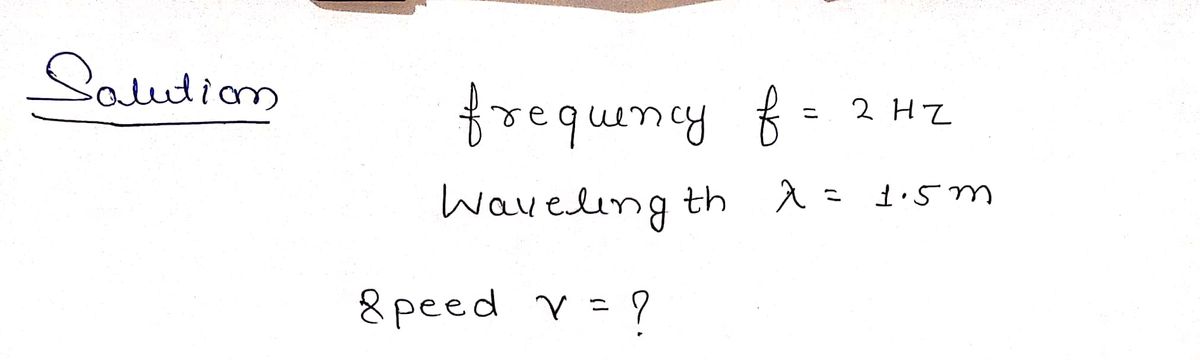 Solution
frequency f = 2 HZ
Wavelength λ = 1.5 m
Speed v = ?